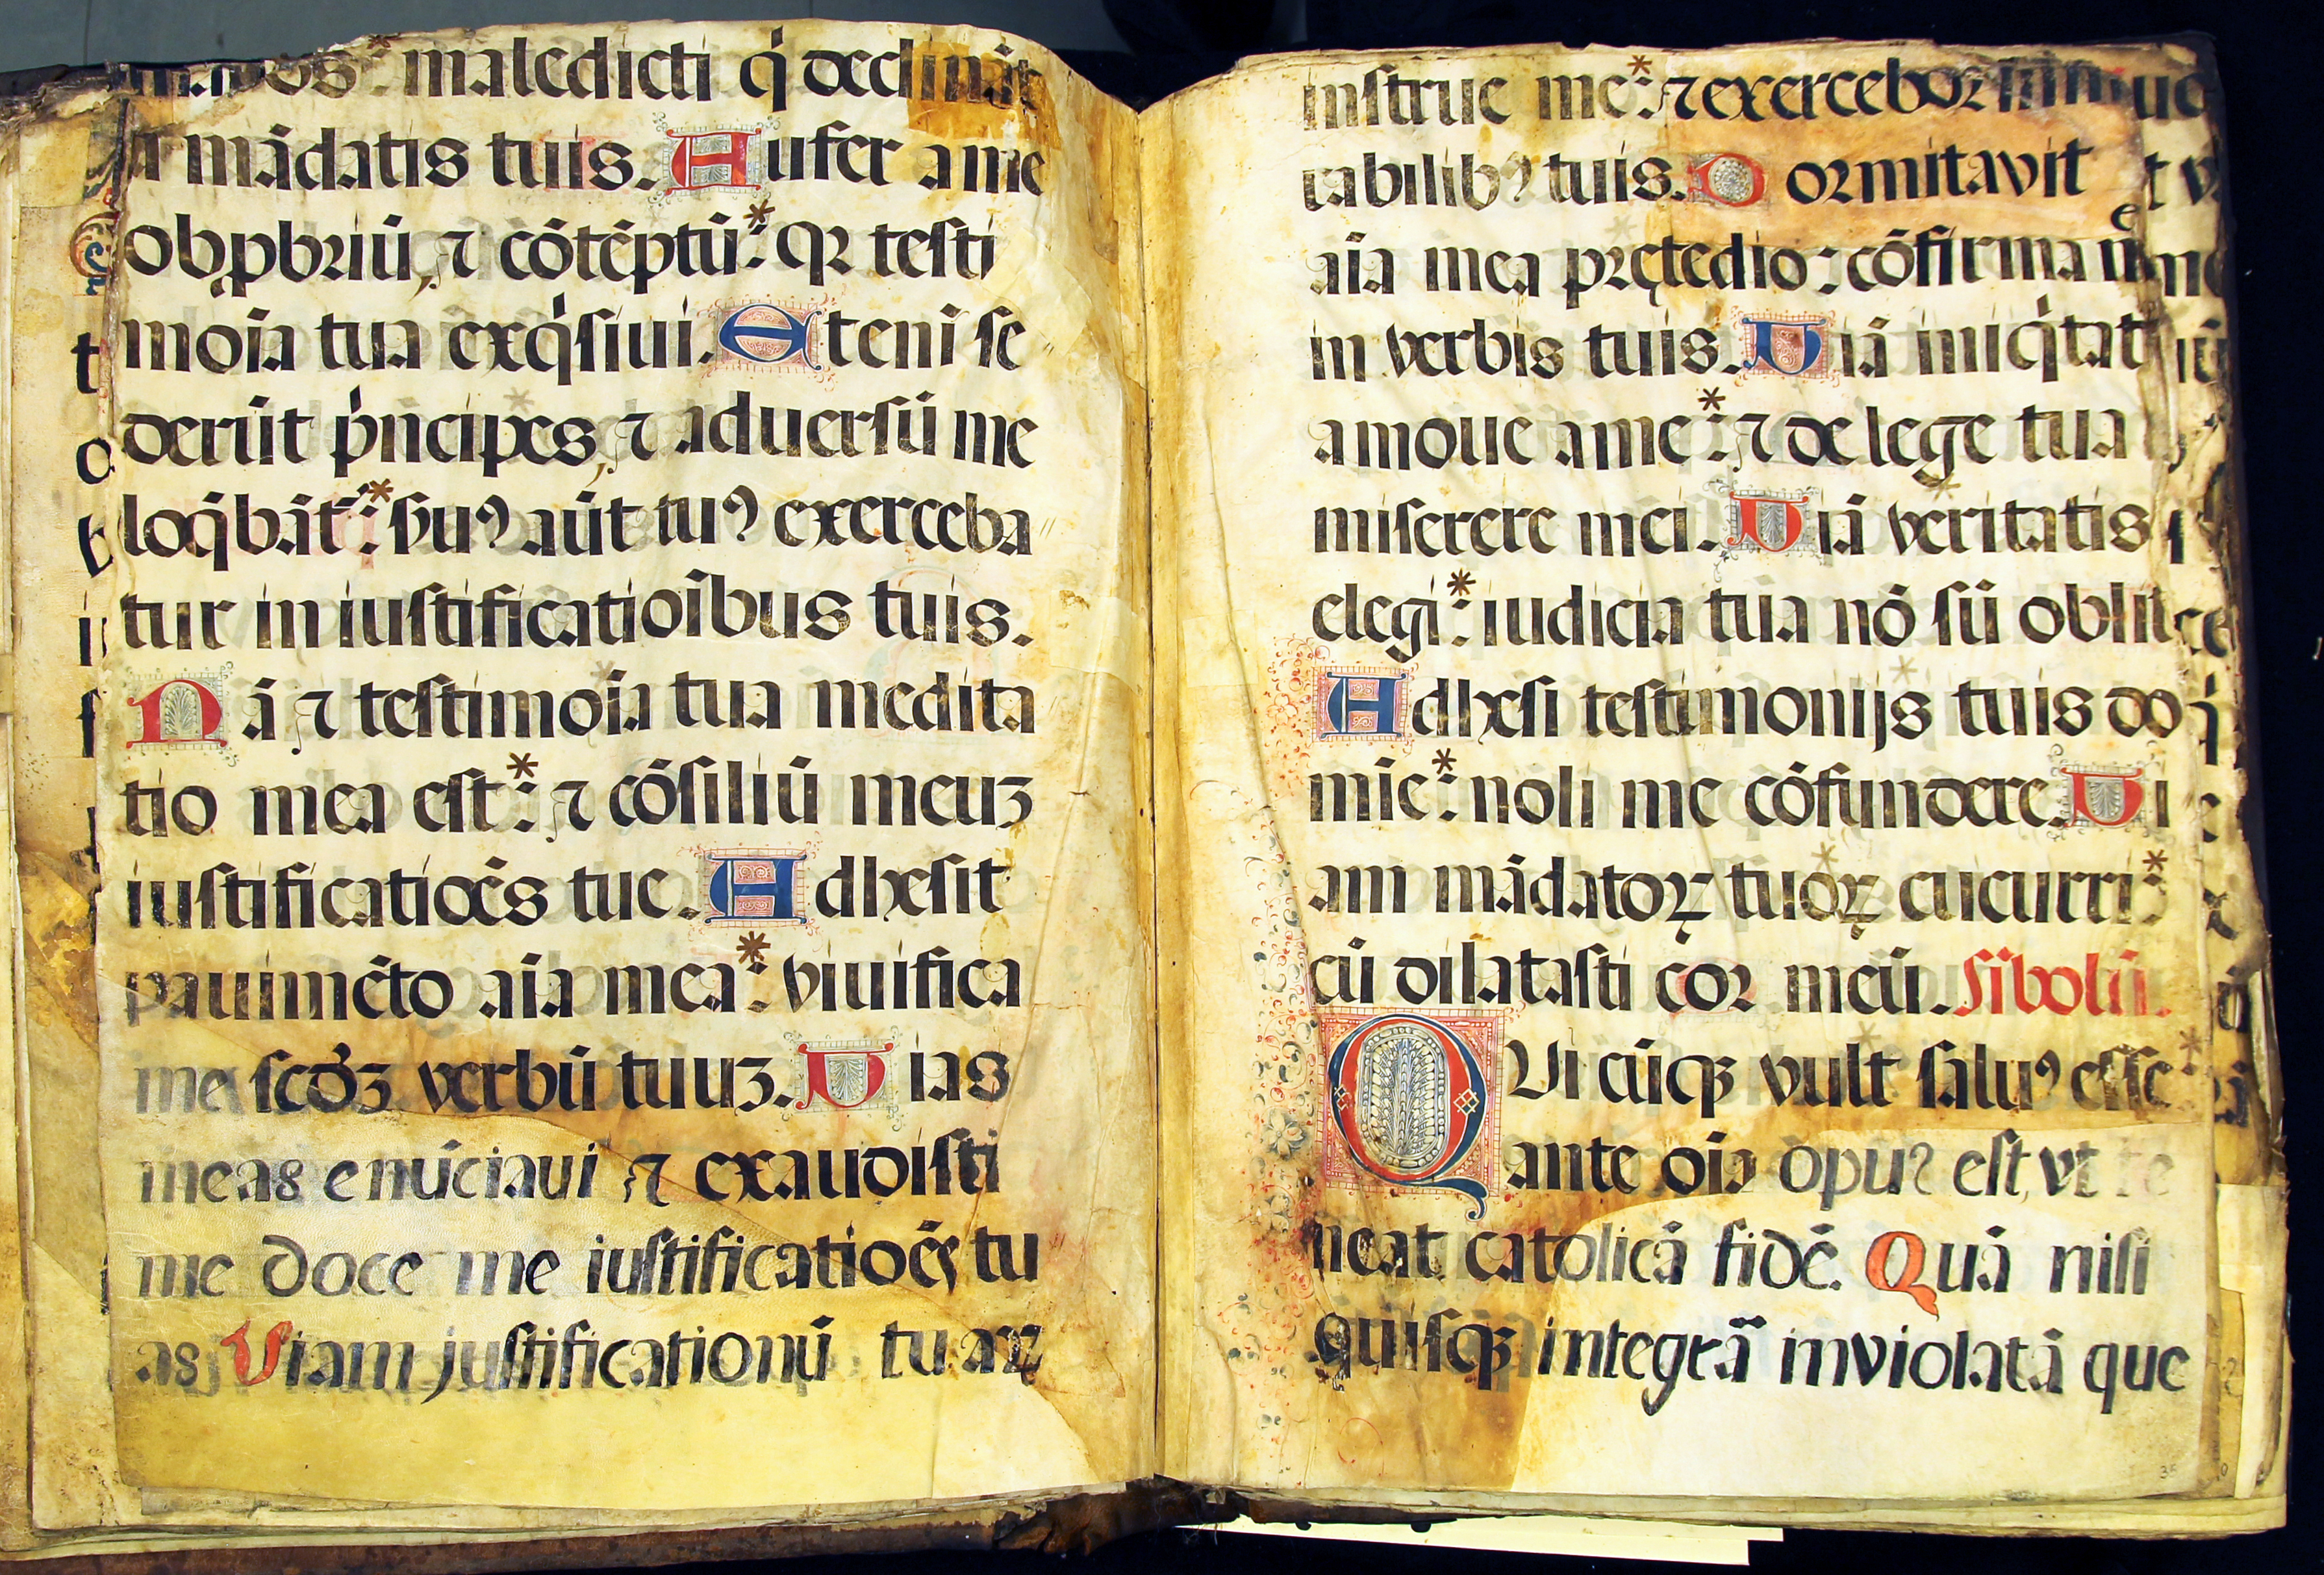 maledicti qͥ declināt
a mādatis tuis. Aufer a me
obꝓbriū, ⁊ cōtēptū: * qꝛ testi
moīa tua exqͥsiui. Etenī se
derūt pͥncipes, ⁊ aduersū me
loqͣbāt᷑: * ẜuꝰ aūt tuꝰ exerceba
tur in iustificatioībus tuis.
Nā ⁊ testimoīa tua medita
tio mea est: * ⁊ cōsiliū meuꝫ
iustificatiōēs tue. Adhesit
pauimēto aīa mea: * viuifica
me scdꝫ verbū tuuꝫ. Vias
meas enūciaui ⁊ exaudisti
me doce me iustificatiōēs tu
as Viam justificationū tuaꝝ
instrue me: * ⁊ exercebor in mi
rabilibꝰ tuis. Dormitavit
aīa mea prętedio: cōfirma me
in verbis tuis. Viā iniqͥtat
amoue a me: * ⁊ de lege tua
miserere mei. Viā veritatis
elegi: * iudicia tua nō sū oblit
Adhesi testimonijs tuis do
mīe: * noli me cōfundere. Vi
am mādatoꝝ tuoꝝ cucurri: *
cū dilatasti cor meū. Sībolū.
Qui cūqꝫ vult saluꝰ esse
ante oīa opuꝰ est, vt te
neat catolicā fidē. Quā nisi
quisqꝫ integrā inviolatā que